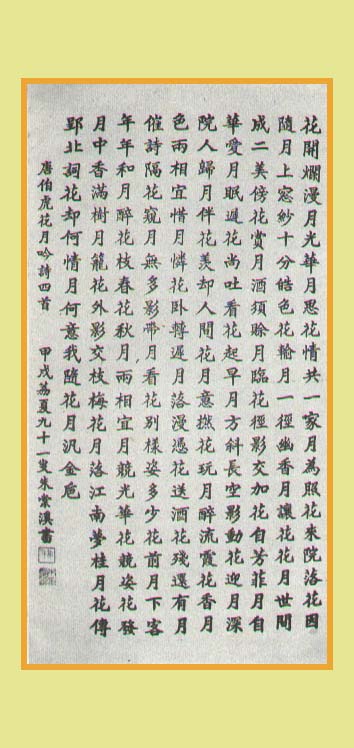 花開爛漫月光華月思花情共一家月為照花來院落花因
隨月上窓紗十分皓色花輸月一徑幽香月讓花花月世間
成二美傍花賞月酒須賒月臨花徑影交加花自芳菲月自
華愛月眠遲花尚吐看花起早月方斜長空影動花迎月深
院人歸月伴花羨却人間花月意撫花玩月醉流霞花香月
色兩相宜惜月憐花臥轉遲月落漫憑花送酒花殘還有月
催詩隔花窺月無多影帶月看花別樣姿多少花前月下客
年年和月醉花枝春花秋月兩相宜月競光華花競姿花發
月中香滿樹月籠花外影交枝梅花月落江南夢桂月花傳
郢北詞花却何情月何意我隨花月汎金巵
唐伯虎花月吟詩四首 甲戌荔夏九十一叟朱棠溪書